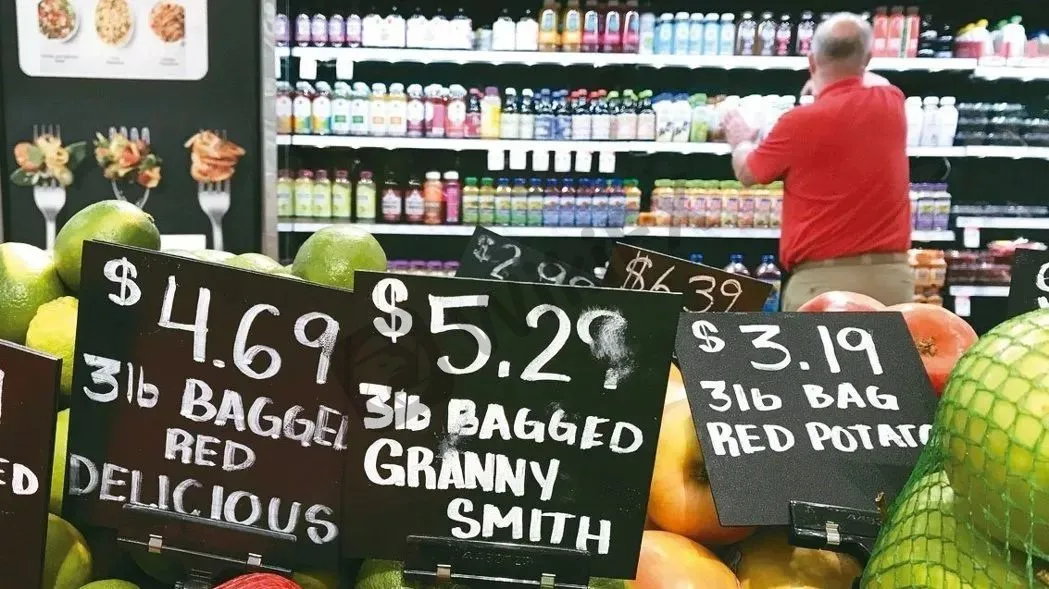 $4.69
3lb BAGGED
RED
DELICIOUS
$5.29
3lb BAGGED
GRANNY
SMITH
$2.99
$6.39
$3.19
3lb BAG
RED POTATO
ED
$